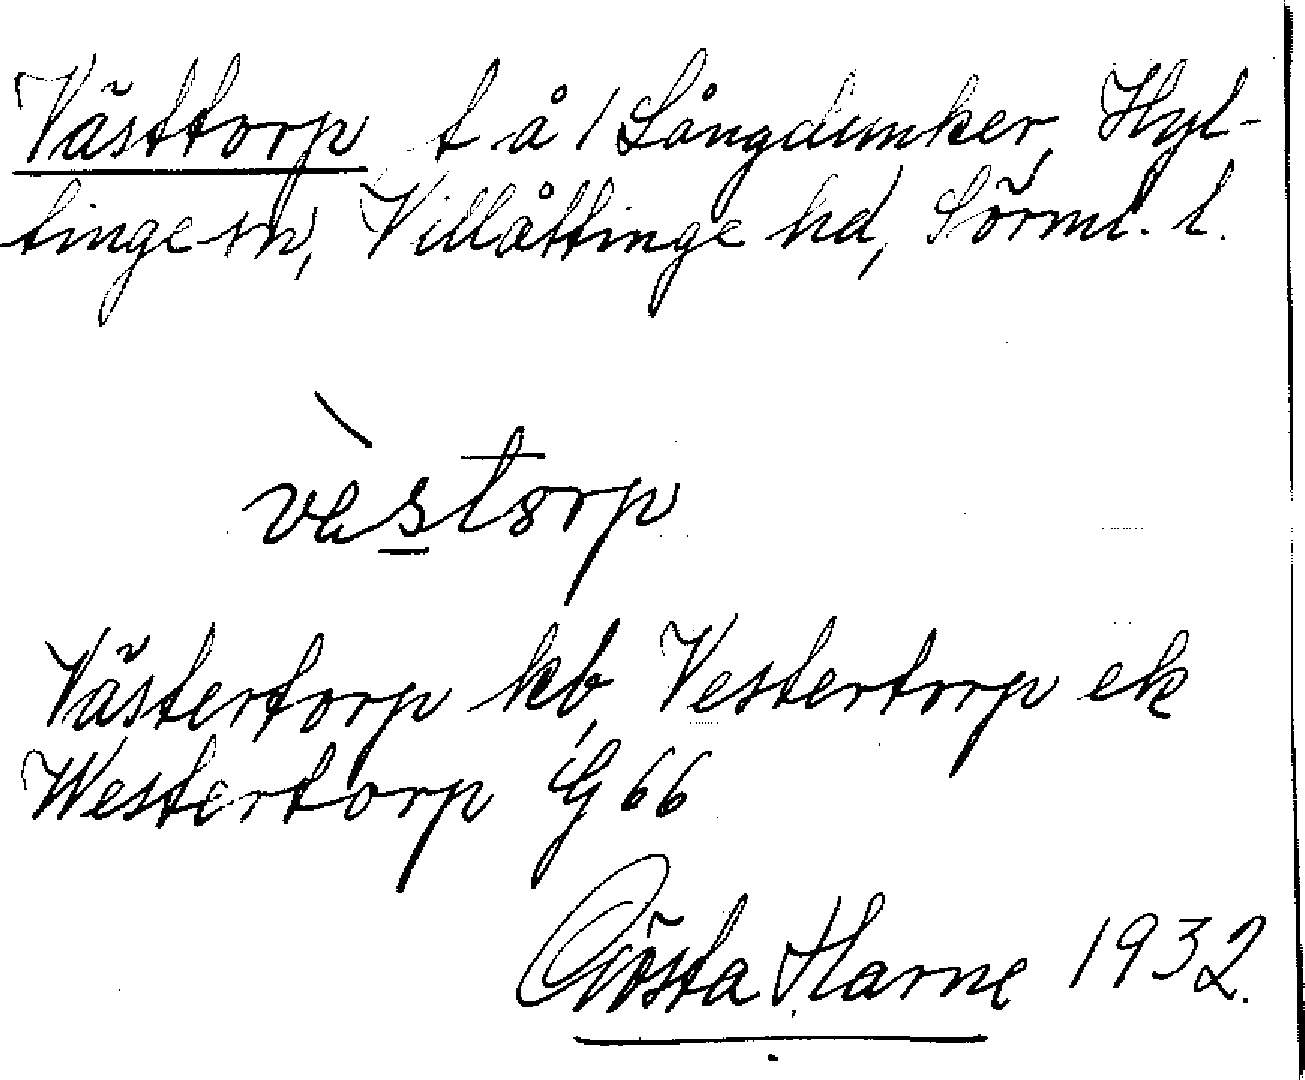 Västtorp t å / Långdunker, Hyl-
tinge sn, Villåttinge hd, Sörml. l.
vèstorp
Västertorp kb, Vestertorp ek
Westertorp G 66
Gösta Harne 1932.